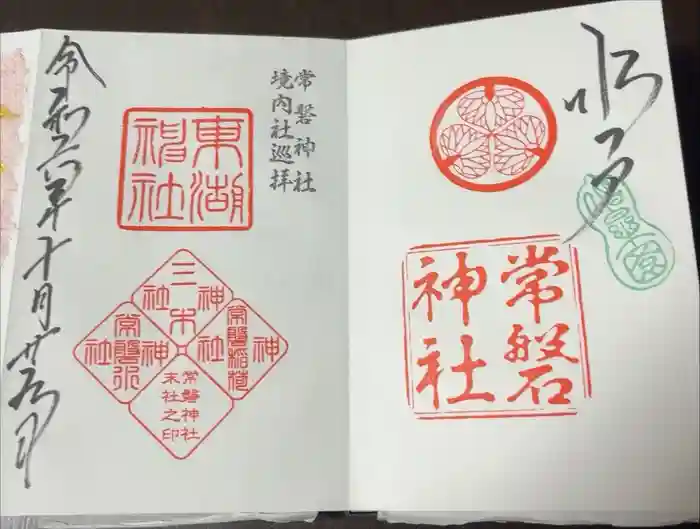 水戸
常磐
神社
常磐神社
境内社巡拝
東湖
神社
三木
神社
常磐稲荷
神社
常磐水
神社
常磐神社
末社之印
令和六年十月廿五日